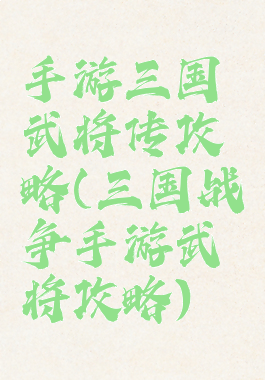 手游三国
武将传攻
略(三国战
争手游武
将攻略)